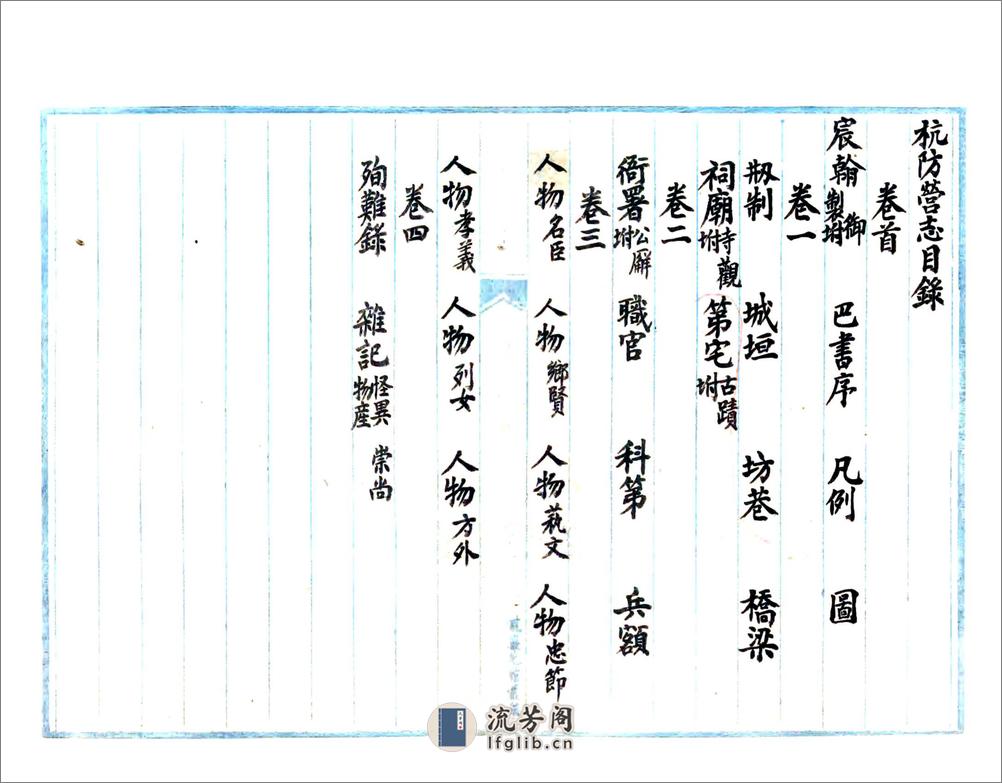 杭防營志目錄
卷首
宸翰 御製坿 巴書序 凡例 圖
卷一
剏制 城垣 坊巷 橋梁
祠廟 寺觀坿 第宅 古蹟坿
卷二
衙署 公廨坿 職官 科第 兵額
卷三
人物 名臣 人物 鄉賢 人物 藝文 人物 忠節
人物 孝義 人物 列女 人物 方外
卷四
殉難錄 雜記 怪異物產 崇尚
流芳阁
lfglib.cn